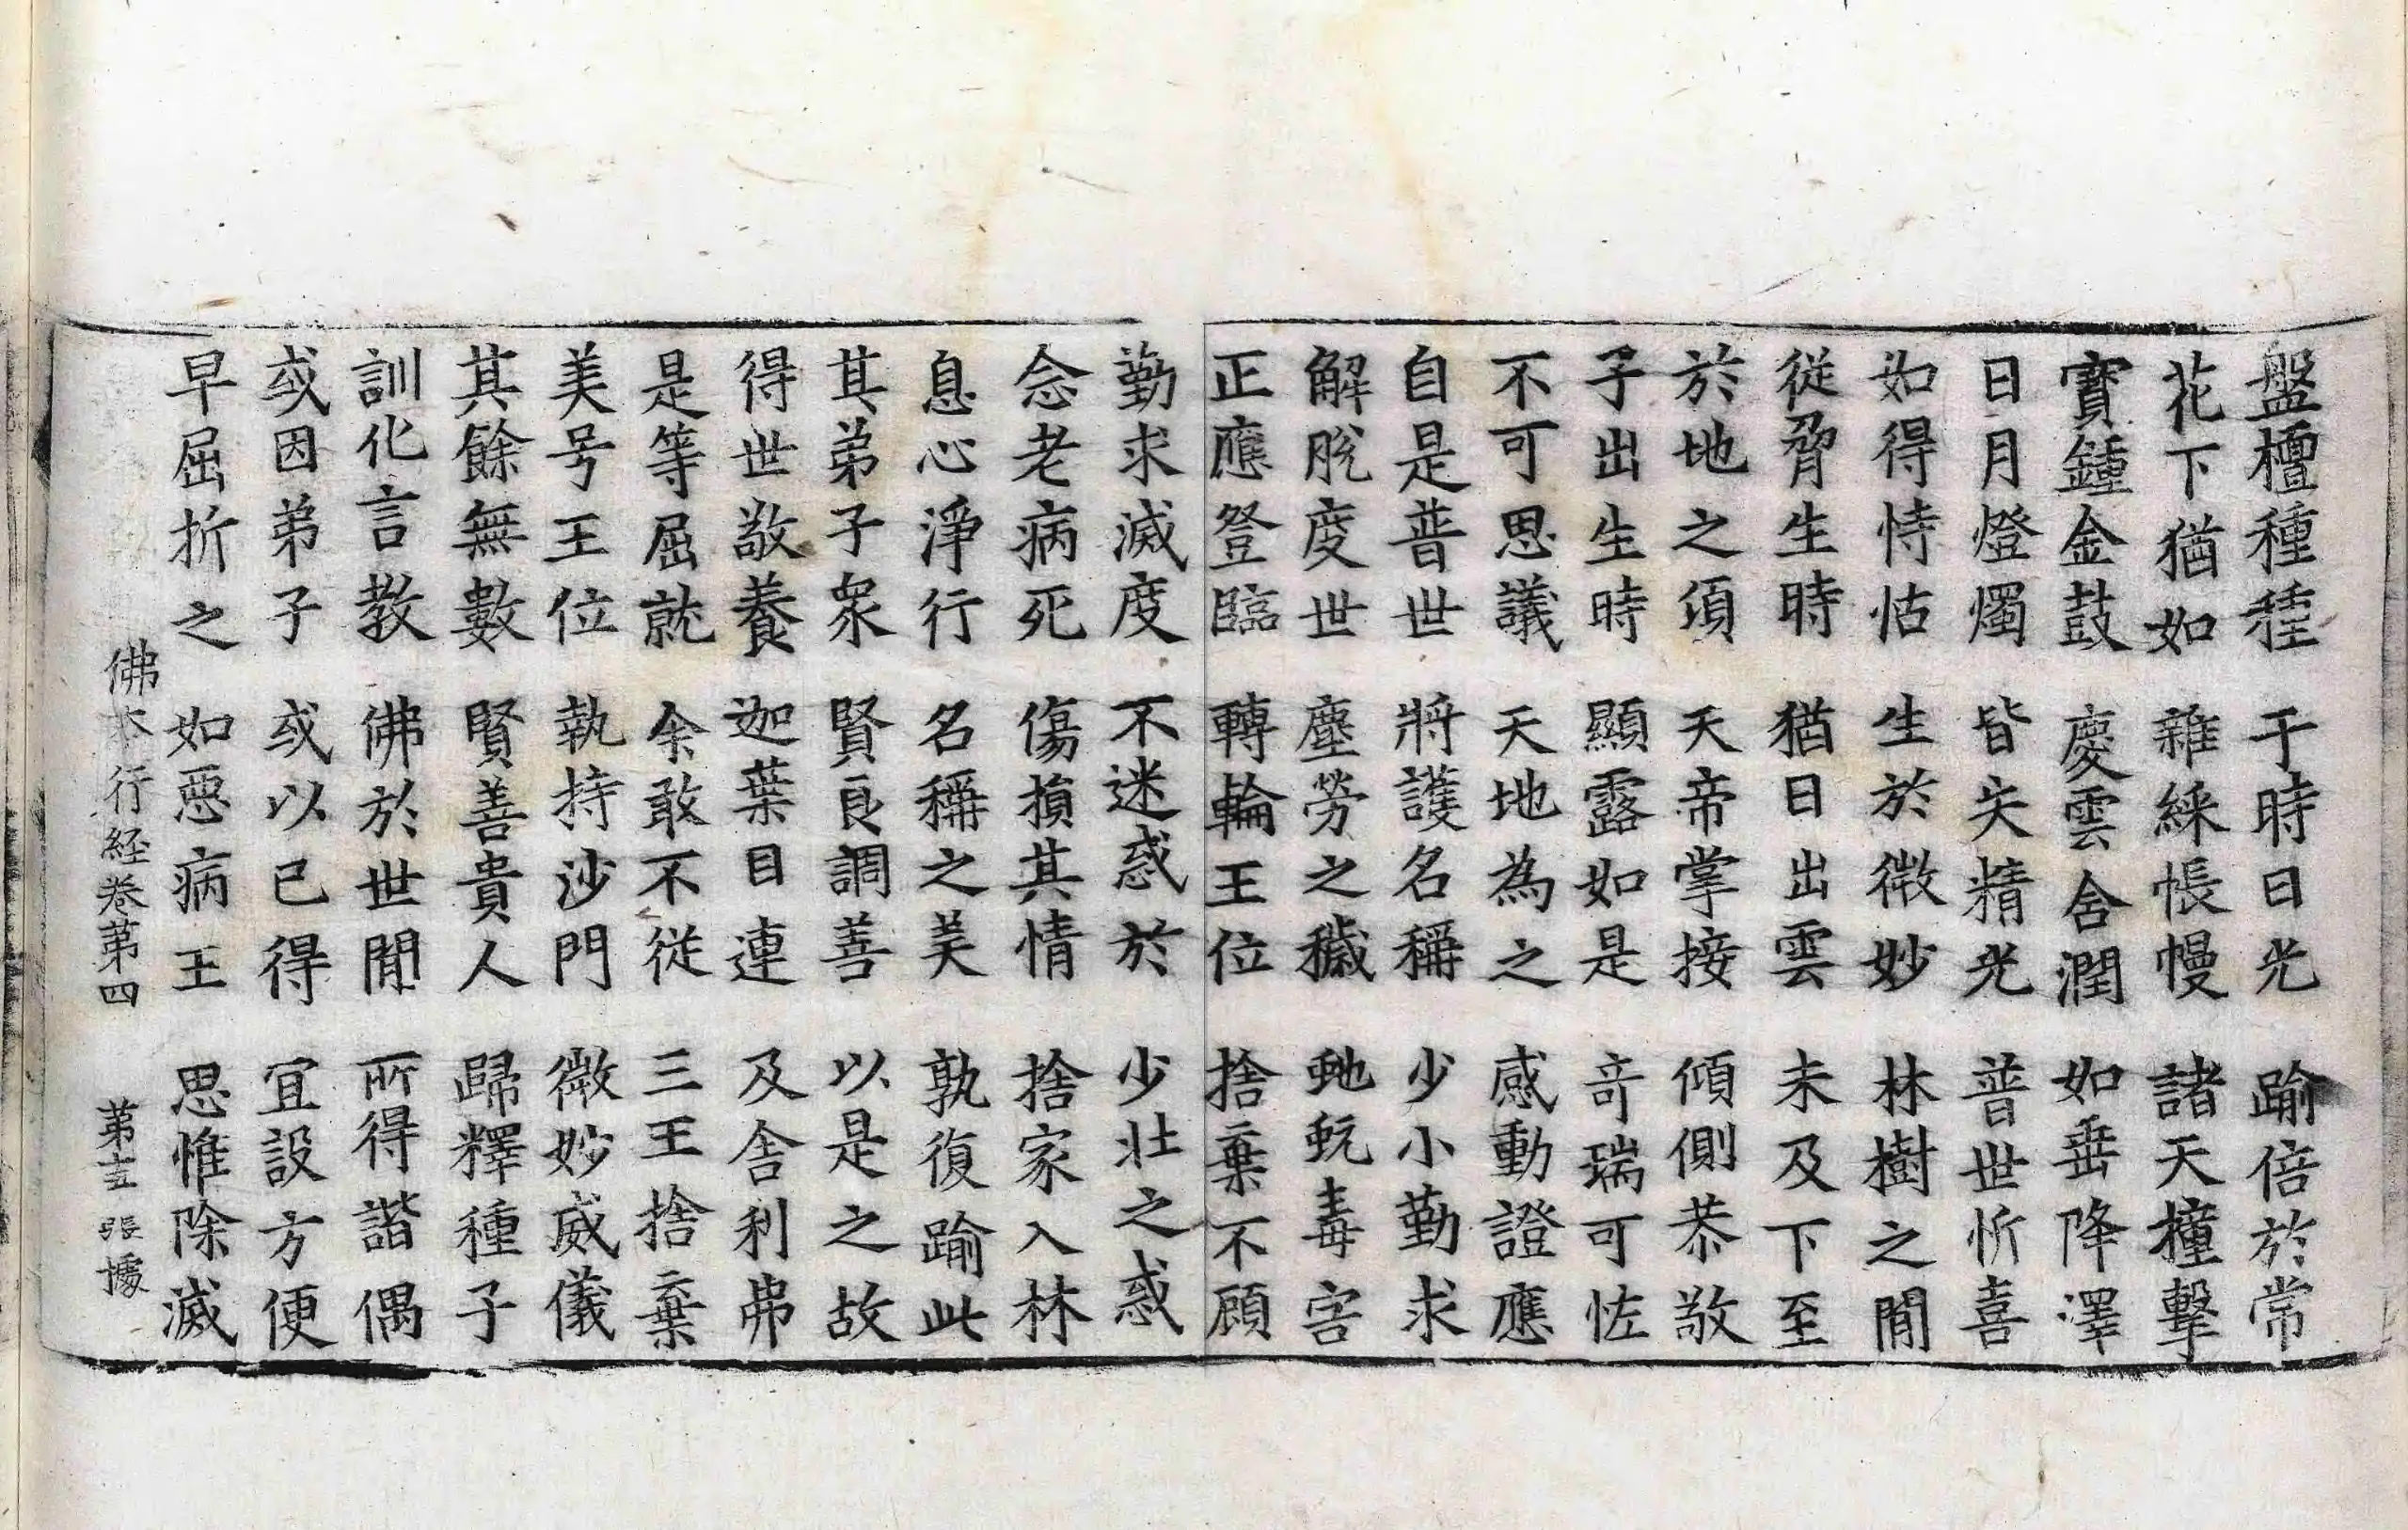 盤檀種種　于時日光　踰倍於常
花下猶如　雜綵帳幔　諸天撞擊
寶鍾金鼓　慶雲含潤　如垂降澤
日月燈燭　皆失精光　普世忻喜
如得恃怙　生於微妙　林樹之間
從脅生時　猶日出雲　未及下至
於地之頃　天帝掌接　傾側恭敬
子出生時　顯露如是　竒瑞可恠
不可思議　天地為之　感動證應
自是普世　將護名稱　少小勤求
解脫度世　塵勞之穢　虵蚖毒害
正應登臨　轉輪王位　捨棄不顧
勤求滅度　不迷惑於　少壯之惑
念老病死　傷損其情　捨家入林
息心淨行　名稱之美　孰復踰此
其弟子衆　賢良調善　以是之故
得世敬養　迦葉目連　及舎利弗
是等屈就　余敢不從　三王捨棄
美号王位　執持沙門　微妙威儀
其餘無數　賢善貴人　歸釋種子
訓化言教　佛於世間　所得諧偶
或因弟子　或以已得　宜設方便
早屈折之　如惡病王　思惟除滅
佛本行経巻第四　第　張　㯫